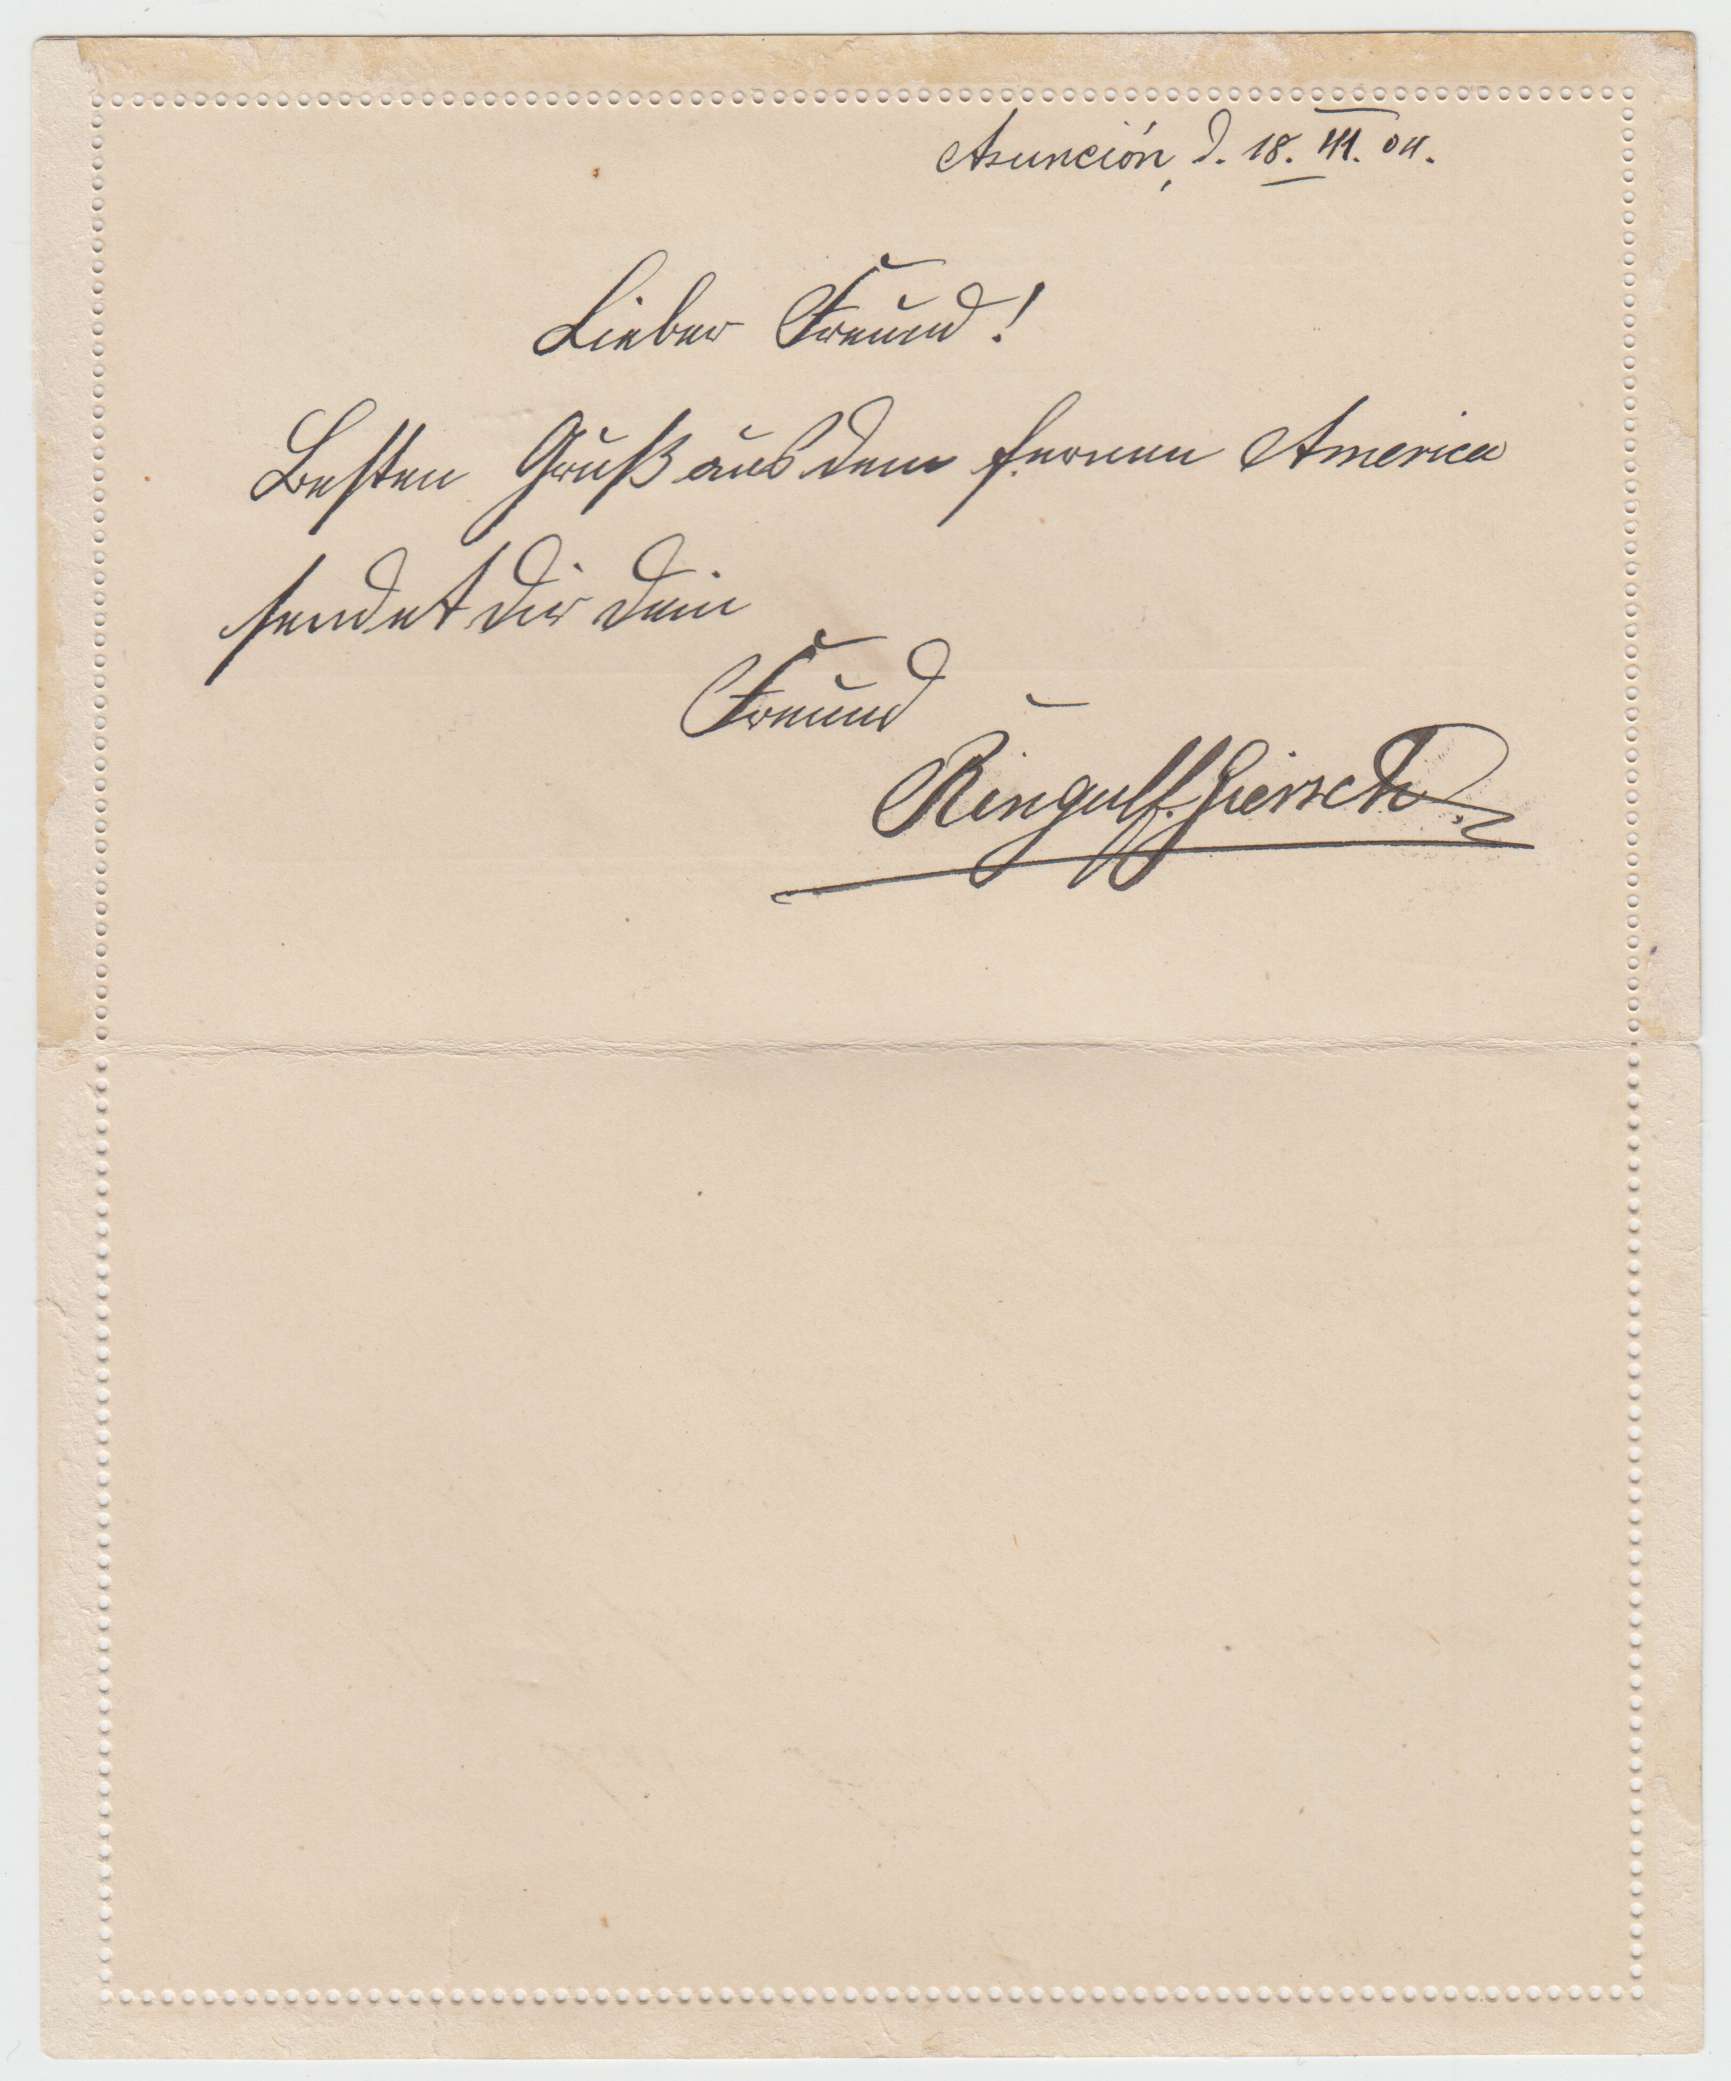 Asunción, d. 18. III. 04.
Lieber Freund!
Besten Gruß aus dem fernen America
sendet Dir Dein
Freund
Ringulf. Giersch.